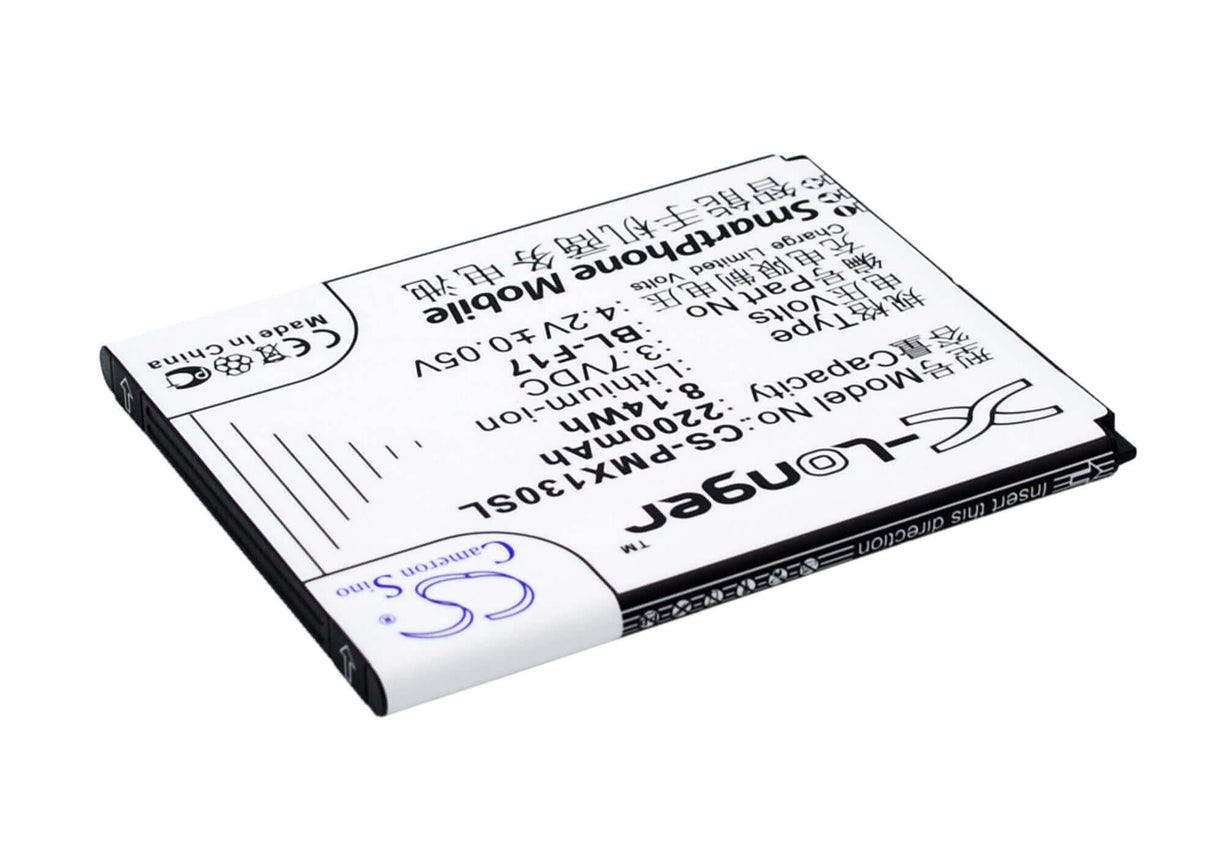 X-Longer™
型号Model No.: CS-PMX130SL
容量Capacity: 2200mAh
8.14Wh
类型Type: Lithium-ion
规格电压Volts: 3.7VDC
电池编号Part No: BL-F17
充电限制电压: 4.2V±0.05V
Charge Limited Volts
SmartPhone Mobile
智能手机商务电池
CS
Cameron Sino
®
CE
Made in China
Insert this direction